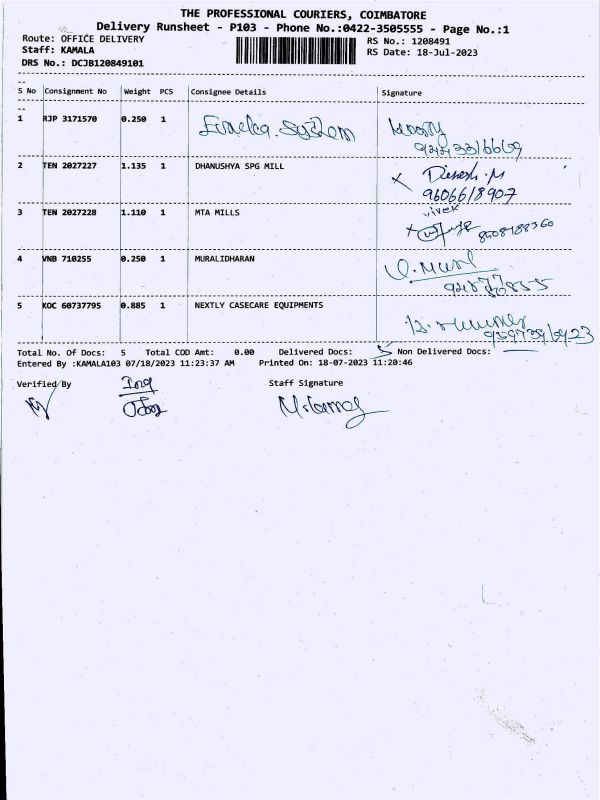 THE PROFESSIONAL COURIERS, COIMBATORE
Delivery Runsheet - P103 - Phone No.:0422-3505555 - Page No.:1
Route: OFFICE DELIVERY
RS No.: 1208491
Staff: KAMALA
RS Date: 18-Jul-2023
DRS No.: DCJB120849101
S No Consignment No Weight PCS Consignee Details Signature
1 RJP 3171570 0.250 1 System
2 TEN 2027227 1.135 1 DHANUSHYA SPG MILL Dinesh.M
9606618907
3 TEN 2027228 1.110 1 MTA MILLS vivek
4 VNB 710255 0.250 1 MURALIDHARAN
5 KOC 60737795 0.885 1 NEXTLY CASECARE EQUIPMENTS
Total No. Of Docs: 5 Total COD Amt: 0.00 Delivered Docs: 5 Non Delivered Docs:
Entered By :KAMALA103 07/18/2023 11:23:37 AM Printed On: 18-07-2023 11:20:46
Verified By Staff Signature